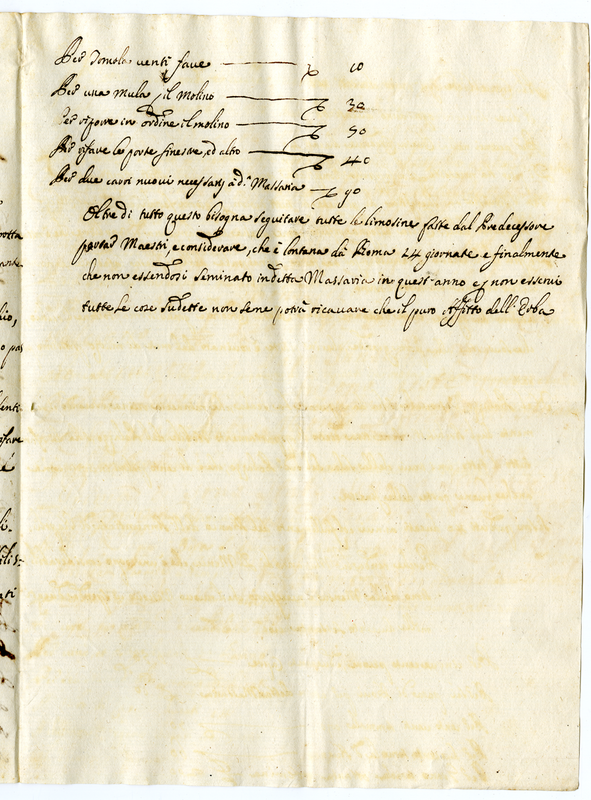 Per tomola venti fave 10
Per una mula p il molino 30
Per riporre in ordine il molino 50
Per rifare le porte finestre, ed altro 40
Per due carri nuovi necessarj a d.ª Massaria 90
Oltre di tutto questo bisogna seguitare tutte le limosine fatte dal Predecessore
Maestri, e considerare, che è lontana da Roma 14 giornate e finalmente
che non essendosi seminato in detta Massaria in quest'anno e p non esservi
tutte le cose sudette non se ne potrà ricavare che il puro Affitto dell'Erba
rotta
ante